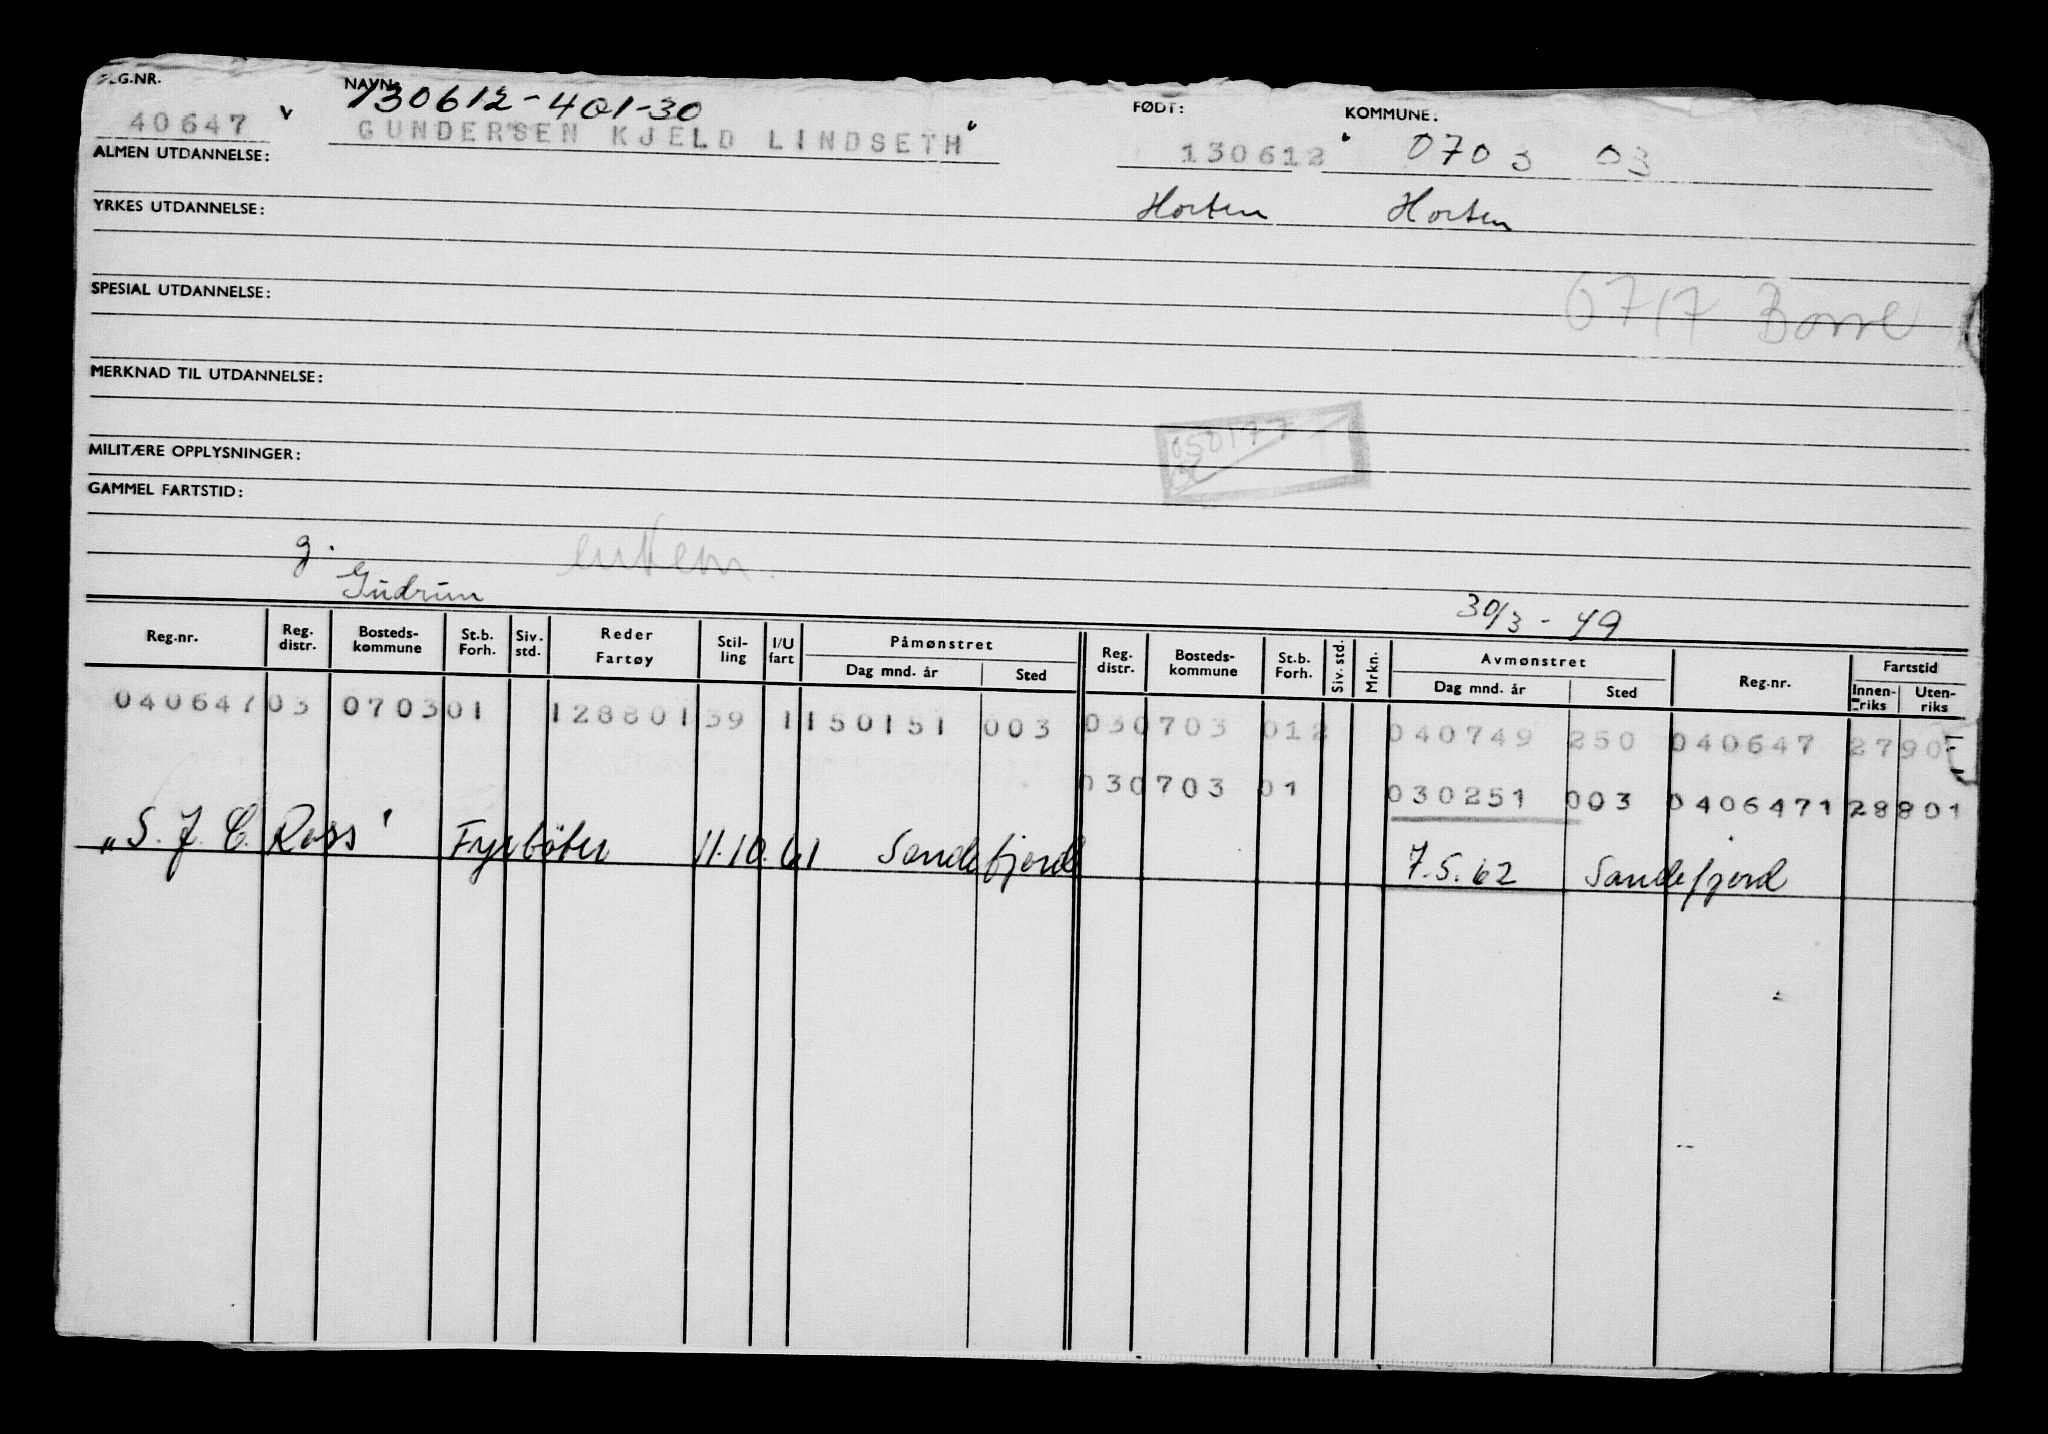 G.NR. NAVN: 130612-401-30 FØDT: KOMMUNE:
40647 v GUNDERSEN KJELD LINDSETH 130612 0703 03
ALMEN UTDANNELSE:
YRKES UTDANNELSE: Horten Horten
SPESIAL UTDANNELSE: 0717 Borre
MERKNAD TIL UTDANNELSE:
050177
MILITÆRE OPPLYSNINGER:
GAMMEL FARTSTID:
g. enkem.
Gudrun 30/3 - 49
Reg.nr. Reg. distr. Bosteds- kommune St.b. Forh. Siv. std. Reder Fartøy Stil- ling I/U fart Påmønstret Dag mnd. år Sted Reg. distr. Bosteds- kommune St.b. Forh. Siv. std. Mrkn. Avmønstret Dag mnd. år Sted Reg.nr. Fartstid Innen- riks Uten- riks
040647 03 0703 01 128801 39 1 150151 003 030703 012 040749 250 040647 2790
030703 01 030251 003 0406471 28801
„S. J. C. Ross" Fyrbøter 11.10.61 Sandefjord 7.5.62 Sandefjord